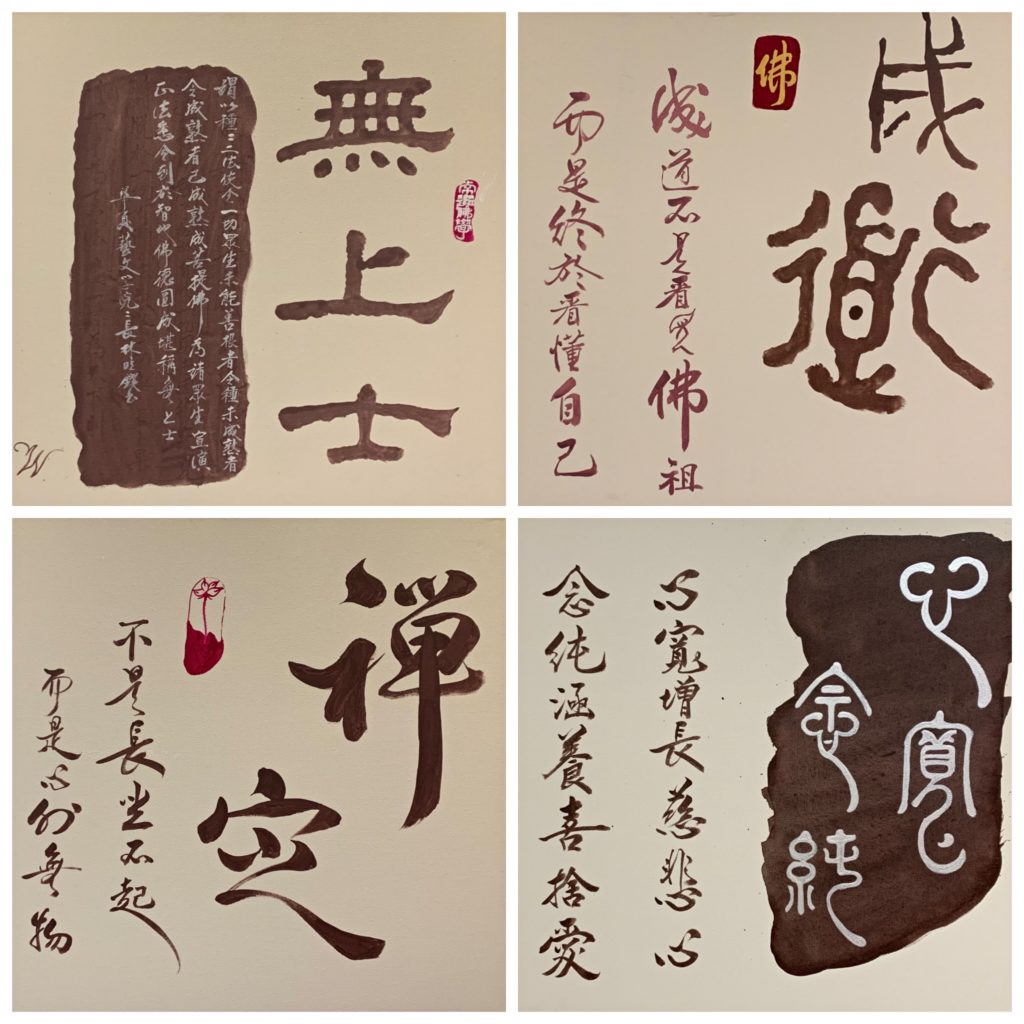 無上士
謂以種種法使令一切眾生未能善根者令種未成熟者
令成熟者已成熟成菩提佛為諸眾生宣演
正法悉令到於智地佛德圓成堪稱無上士
藝文學院院長林
成道
佛
成道不是看見佛祖
而是終於看懂自己
禪定
不是長坐不起
而是心外無物
心寬
念純
心寬增長慈悲心
念純涵養喜捨愛